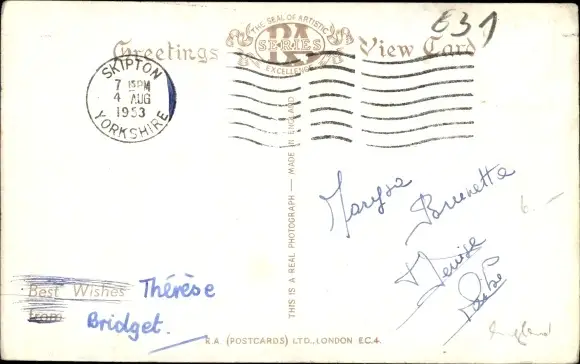 E31
THE SEAL OF ARTISTIC
Greetings RA View Card
SERIES
EXCELLENCE
SKIPTON
7 15 PM
4 AUG
1953
YORKSHIRE
THIS IS A REAL PHOTOGRAPH — MADE IN ENGLAND
Marysa
Brunetta
Denise
Best Wishes Thérèse
from Bridget.
England
R.A. (POSTCARDS) LTD., LONDON E.C.4.